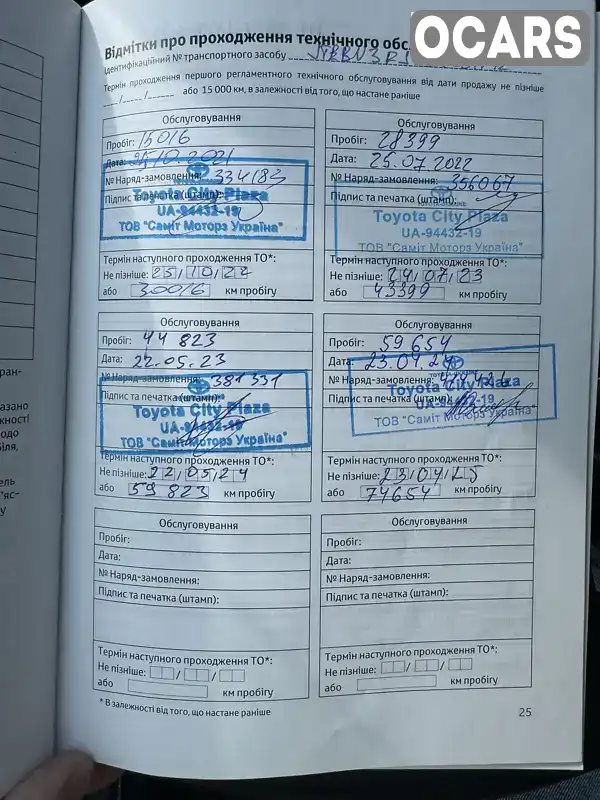 OCARS
Відмітки про проходження технічного обс
Ідентифікаційний № транспортного засобу
Термін проходження першого регламентного технічного обслуговування від дати продажу не пізніше
__/__/____ або 15 000 км, в залежності від того, що настане раніше
Обслуговування
Пробіг: 15016
Дата: 25.10.2021
№ Наряд-замовлення: 334183
Підпис та печатка (штамп):
Toyota City Plaza
UA-94432-19
ТОВ "Саміт Моторз Україна"
Термін наступного проходження ТО*:
Не пізніше: 25/10/22
або 30016 км пробігу
Обслуговування
Пробіг: 28399
Дата: 25.07.2022
№ Наряд-замовлення: 356067
Підпис та печатка (штамп):
Toyota City Plaza
UA-94432-19
ТОВ "Саміт Моторз Україна"
Термін наступного проходження ТО*:
Не пізніше: 24/07/23
або 43399 км пробігу
Обслуговування
Пробіг: 44 823
Дата: 22.05.23
№ Наряд-замовлення: 381331
Підпис та печатка (штамп):
Toyota City Plaza
UA-94432-19
ТОВ "Саміт Моторз Україна"
Термін наступного проходження ТО*:
Не пізніше: 22/05/24
або 59 823 км пробігу
Обслуговування
Пробіг: 59 654
Дата: 23.04.24
№ Наряд-замовлення:
Підпис та печатка (штамп):
Toyota City Plaza
UA-94432-19
ТОВ "Саміт Моторз Україна"
Термін наступного проходження ТО*:
Не пізніше: 23/04/25
або 74654 км пробігу
Обслуговування
Пробіг:
Дата:
№ Наряд-замовлення:
Підпис та печатка (штамп):
Термін наступного проходження ТО*:
Не пізніше:
або км пробігу
Обслуговування
Пробіг:
Дата:
№ Наряд-замовлення:
Підпис та печатка (штамп):
Термін наступного проходження ТО*:
Не пізніше:
або км пробігу
* В залежності від того, що настане раніше
25